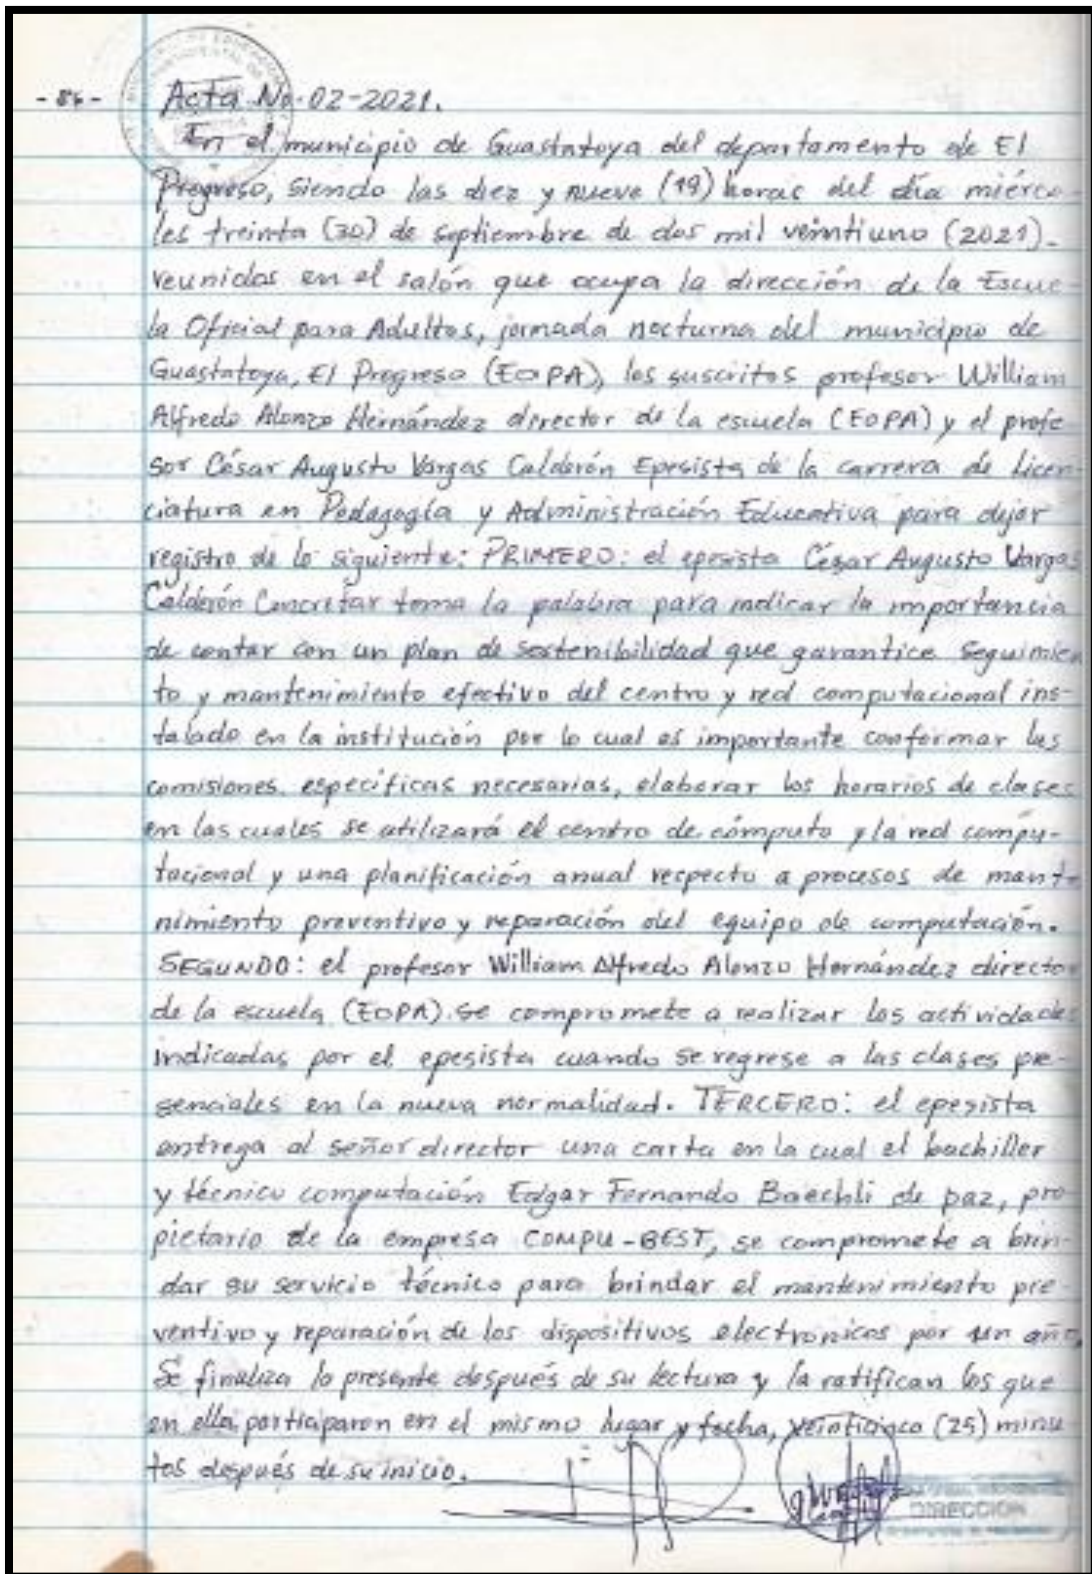 - 86 - Acta No. 02-2021.
En el municipio de Guastatoya del departamento de El
Progreso, siendo las diez y nueve (19) horas del día miérco
les treinta (30) de septiembre de dos mil veintiuno (2021).
reunidos en el salón que ocupa la dirección de la Escue-
la Oficial para Adultos, jornada nocturna del municipio de
Guastatoya, El Progreso (EOPA), los suscritos profesor William
Alfredo Alonzo Hernández director de la escuela (EOPA) y el profe
sor César Augusto Vargas Calderón Epesista de la carrera de Licen
ciatura en Pedagogía y Administración Educativa para dejar
registro de lo siguiente: PRIMERO: el epesista César Augusto Vargas
Calderón Concretar toma la palabra para indicar la importancia
de contar con un plan de sostenibilidad que garantice seguimien
to y mantenimiento efectivo del centro y red computacional ins-
talado en la institución por lo cual es importante conformar las
comisiones específicas necesarias, elaborar los horarios de clases
en las cuales se utilizará el centro de cómputo y la red compu-
tacional y una planificación anual respecto a procesos de mante
nimiento preventivo y reparación del equipo de computación.
SEGUNDO: el profesor William Alfredo Alonzo Hernández director
de la escuela (EOPA) se compromete a realizar las actividades
indicadas por el epesista cuando se regrese a las clases pre-
senciales en la nueva normalidad. TERCERO: el epesista
entrega al señor director una carta en la cual el bachiller
y técnico computación Edgar Fernando Baechli de paz, pro
pietario de la empresa COMPU-BEST, se compromete a brin-
dar su servicio técnico para brindar el mantenimiento pre-
ventivo y reparación de los dispositivos electronicos por un año,
Se finaliza la presente después de su lectura y la ratifican los que
en ella participaron en el mismo lugar y fecha, veinticinco (25) minu
tos después de su inicio.
DIRECCION